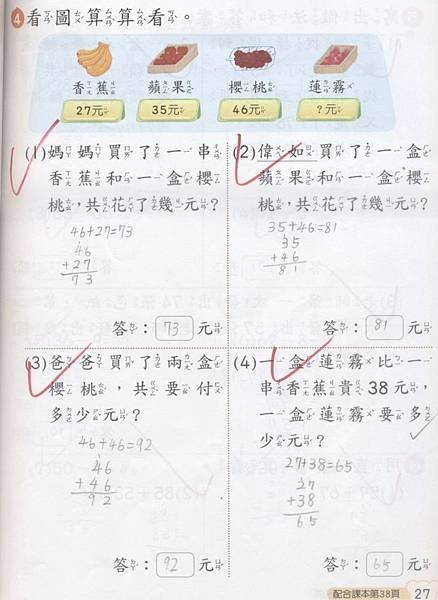 4 看圖算算看。
香蕉 蘋果 櫻桃 蓮霧
27元 35元 46元 ?元
(1)媽媽買了一串
香蕉和一盒櫻
桃,共花了幾元?
46+27=73
46
+27
73
答:73元
(2)偉如買了一盒
蘋果和一盒櫻
桃,共花了幾元?
35+46=81
35
+46
81
答:81元
(3)爸爸買了兩盒
櫻桃,共要付
多少元?
46+46=92
46
+46
92
答:92元
(4)一盒蓮霧比一
串香蕉貴38元,
一盒蓮霧要多
少元?
27+38=65
27
+38
65
答:65元
配合課本第38頁 27